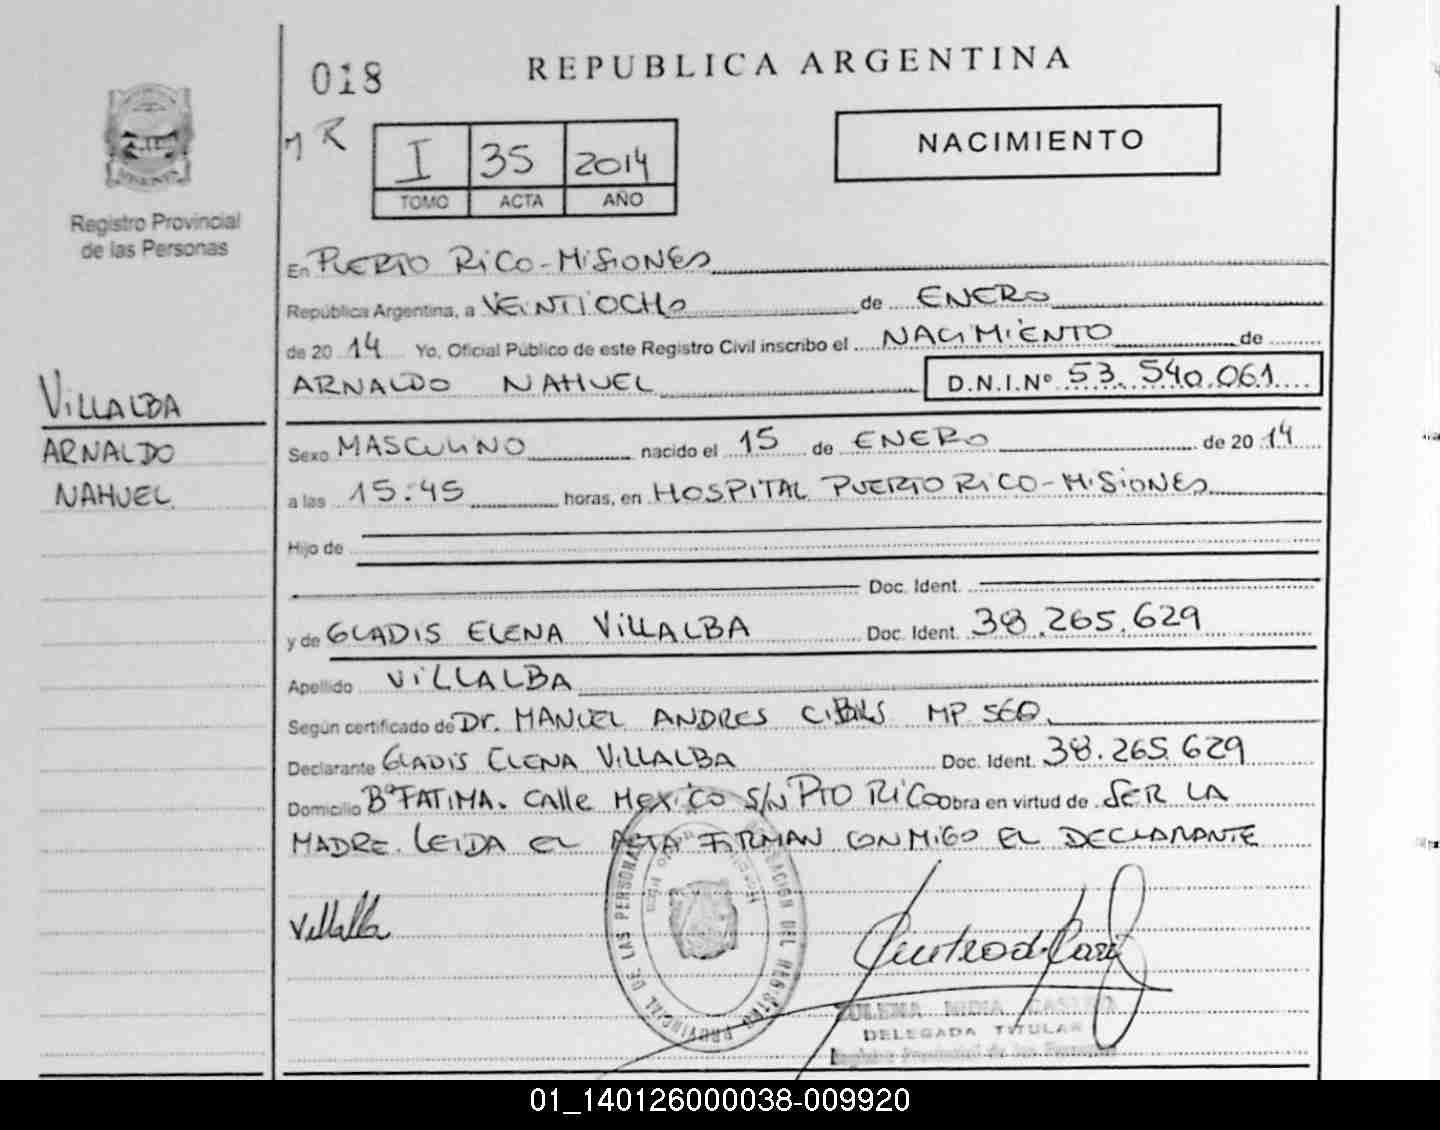 REPUBLICA ARGENTINA
018
NACIMIENTO
I 35 2014
TOMO ACTA AÑO
Registro Provincial
de las Personas
En PUERTO RICO-MISIONES
República Argentina, a VEINTIOCHO de ENERO
de 2014 Yo, Oficial Público de este Registro Civil inscribo el NACIMIENTO de
ARNALDO NAHUEL D.N.I.Nº 53.540.061
VILLALBA
ARNALDO
NAHUEL
Sexo MASCULINO nacido el 15 de ENERO de 2014
a las 15:45 horas, en HOSPITAL PUERTO RICO-MISIONES
Hijo de
Doc. Ident.
y de GLADIS ELENA VILLALBA Doc. Ident. 38.265.629
Apellido VILLALBA
Según certificado de Dr. MANUEL ANDRES CIBILS MP 560
Declarante GLADIS ELENA VILLALBA Doc. Ident. 38.265.629
Domicilio Bº FATIMA. Calle MEXICO S/N PTO RICO Obra en virtud de SER LA
MADRE. LEIDA EL ACTA FIRMAN CONMIGO EL DECLARANTE
Villalba
PROVINCIAL DE LAS PERSONAS
DELEGADA TITULAR
Registro Provincial de las Personas
01_140126000038-009920